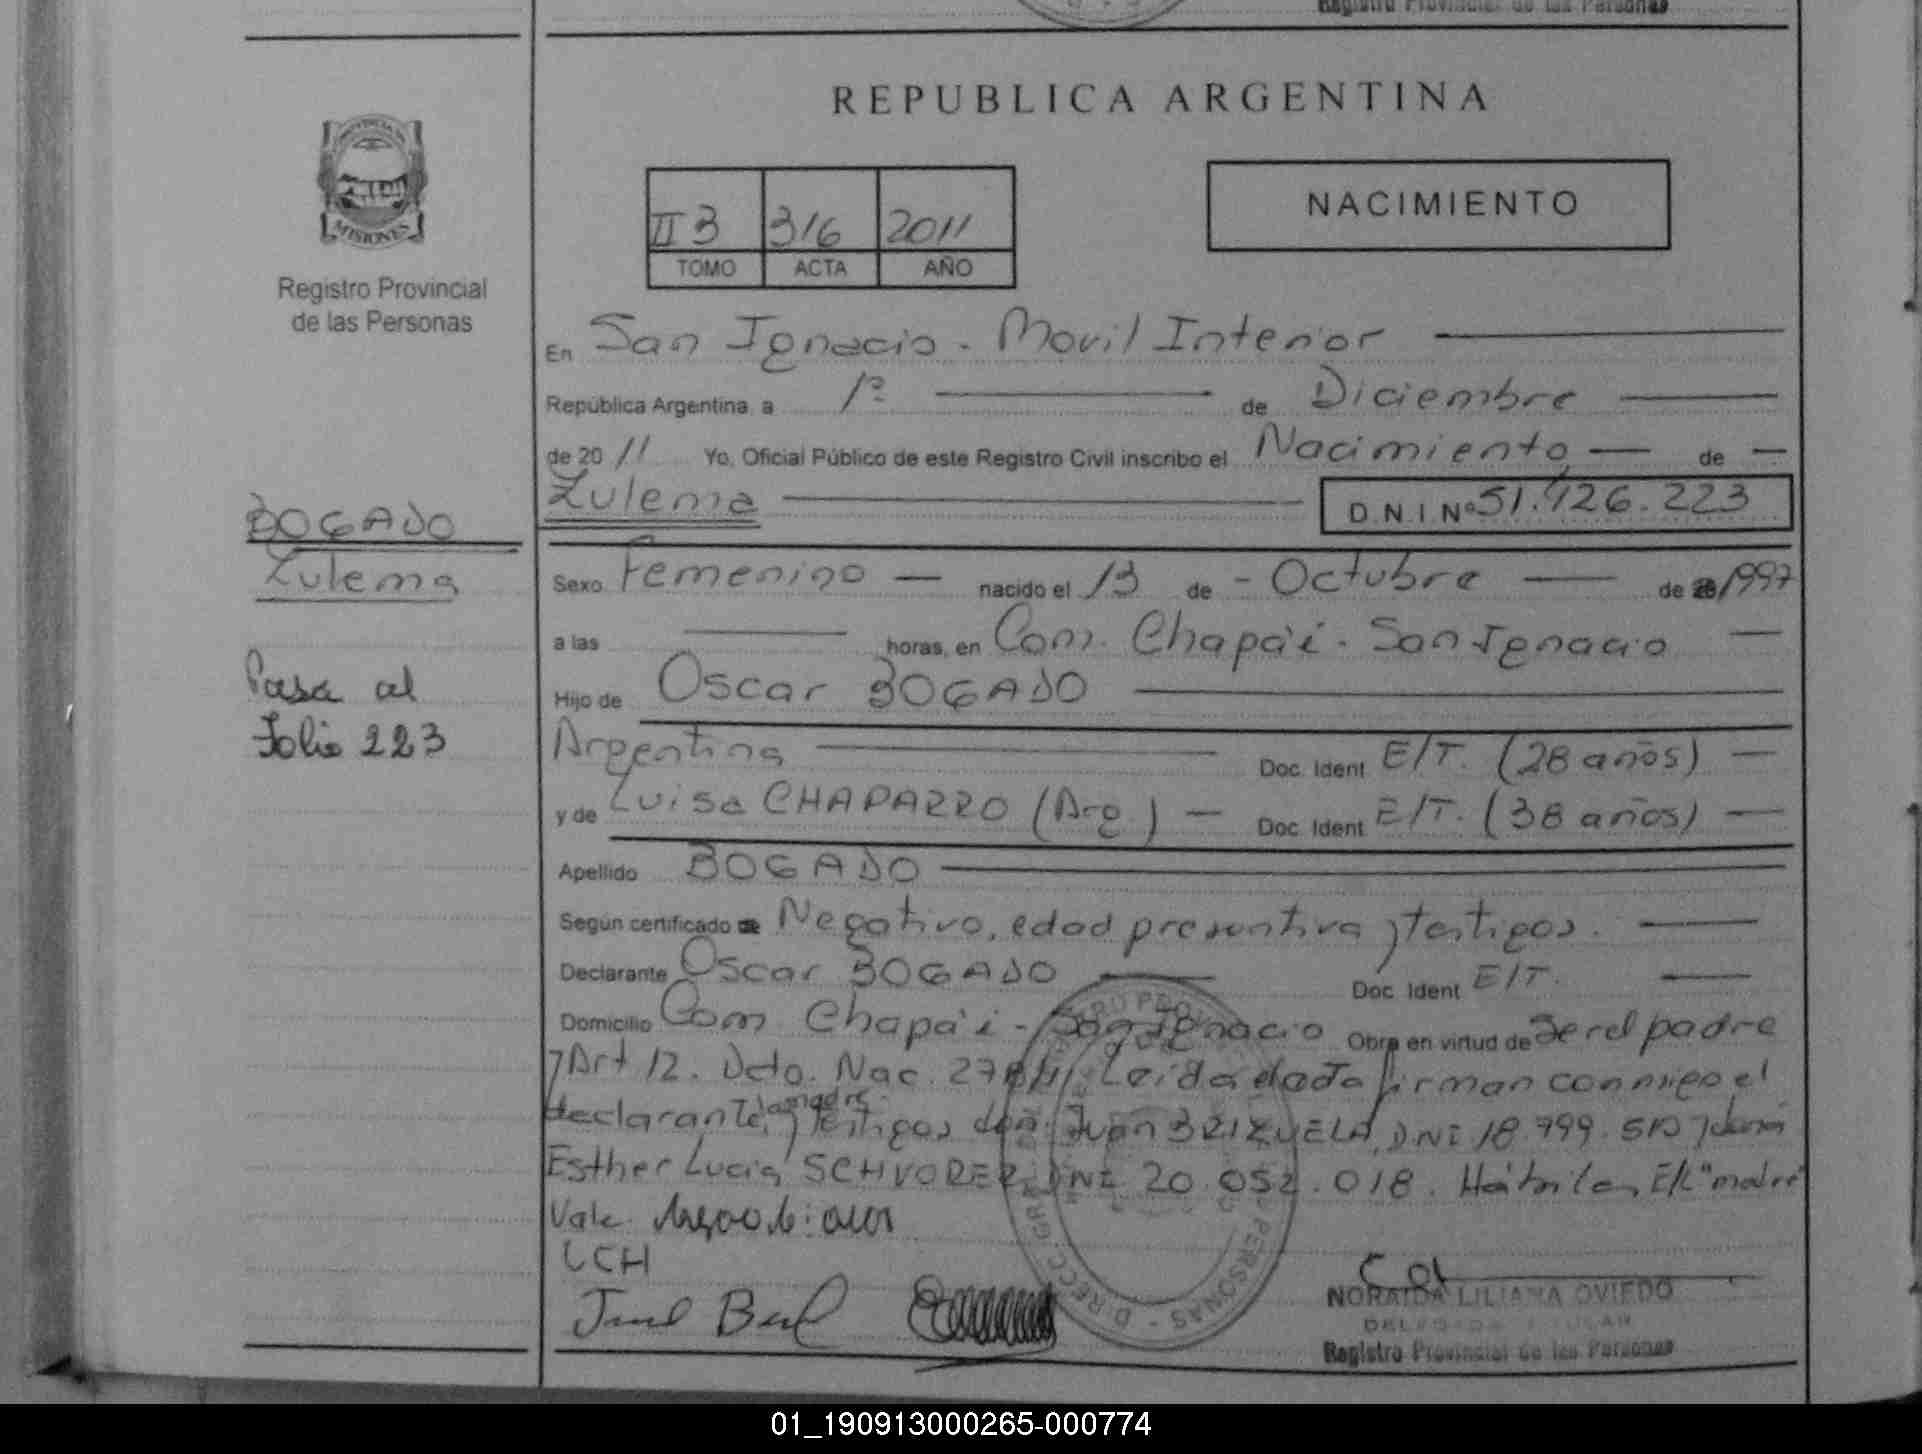 Registro Provincial de las Personas
REPUBLICA ARGENTINA
PROVINCIA DE
MISIONES
Registro Provincial
de las Personas
II 3 316 2011
TOMO ACTA AÑO
NACIMIENTO
En San Ignacio - Movil Interior
República Argentina, a 1º de Diciembre
de 20 11 Yo, Oficial Público de este Registro Civil inscribo el Nacimiento de
Zulema D.N.I.Nº 51.126.223
BOGADO
Zulema
Pasa al
Folio 223
Sexo Femenino nacido el 13 de - Octubre de 1997
a las horas, en Com. Chapa'i - San Ignacio
Hijo de Oscar BOGADO
Argentina Doc. Ident E/T. (28 años)
y de Luisa CHAPARRO (Arg) Doc. Ident E/T. (38 años)
Apellido BOGADO
Según certificado de Negativo, edad presuntiva y testigos.
Declarante Oscar BOGADO Doc. Ident E/T.
Domicilio Com Chapa'i - San Ignacio Obra en virtud de Ser el padre
y Art 12. Dcto. Nac. Leida el acta firman conmigo el
declarante, la madre y testigos don Juan BRIZUELA, DNI 18.799. y doña
Esther Lucia DNI 20.052.018. E/L "madre"
Vale.
LCH
NORAIDA LILIANA OVIEDO
DELEGADA TITULAR
Registro Provincial de las Personas
01_190913000265-000774